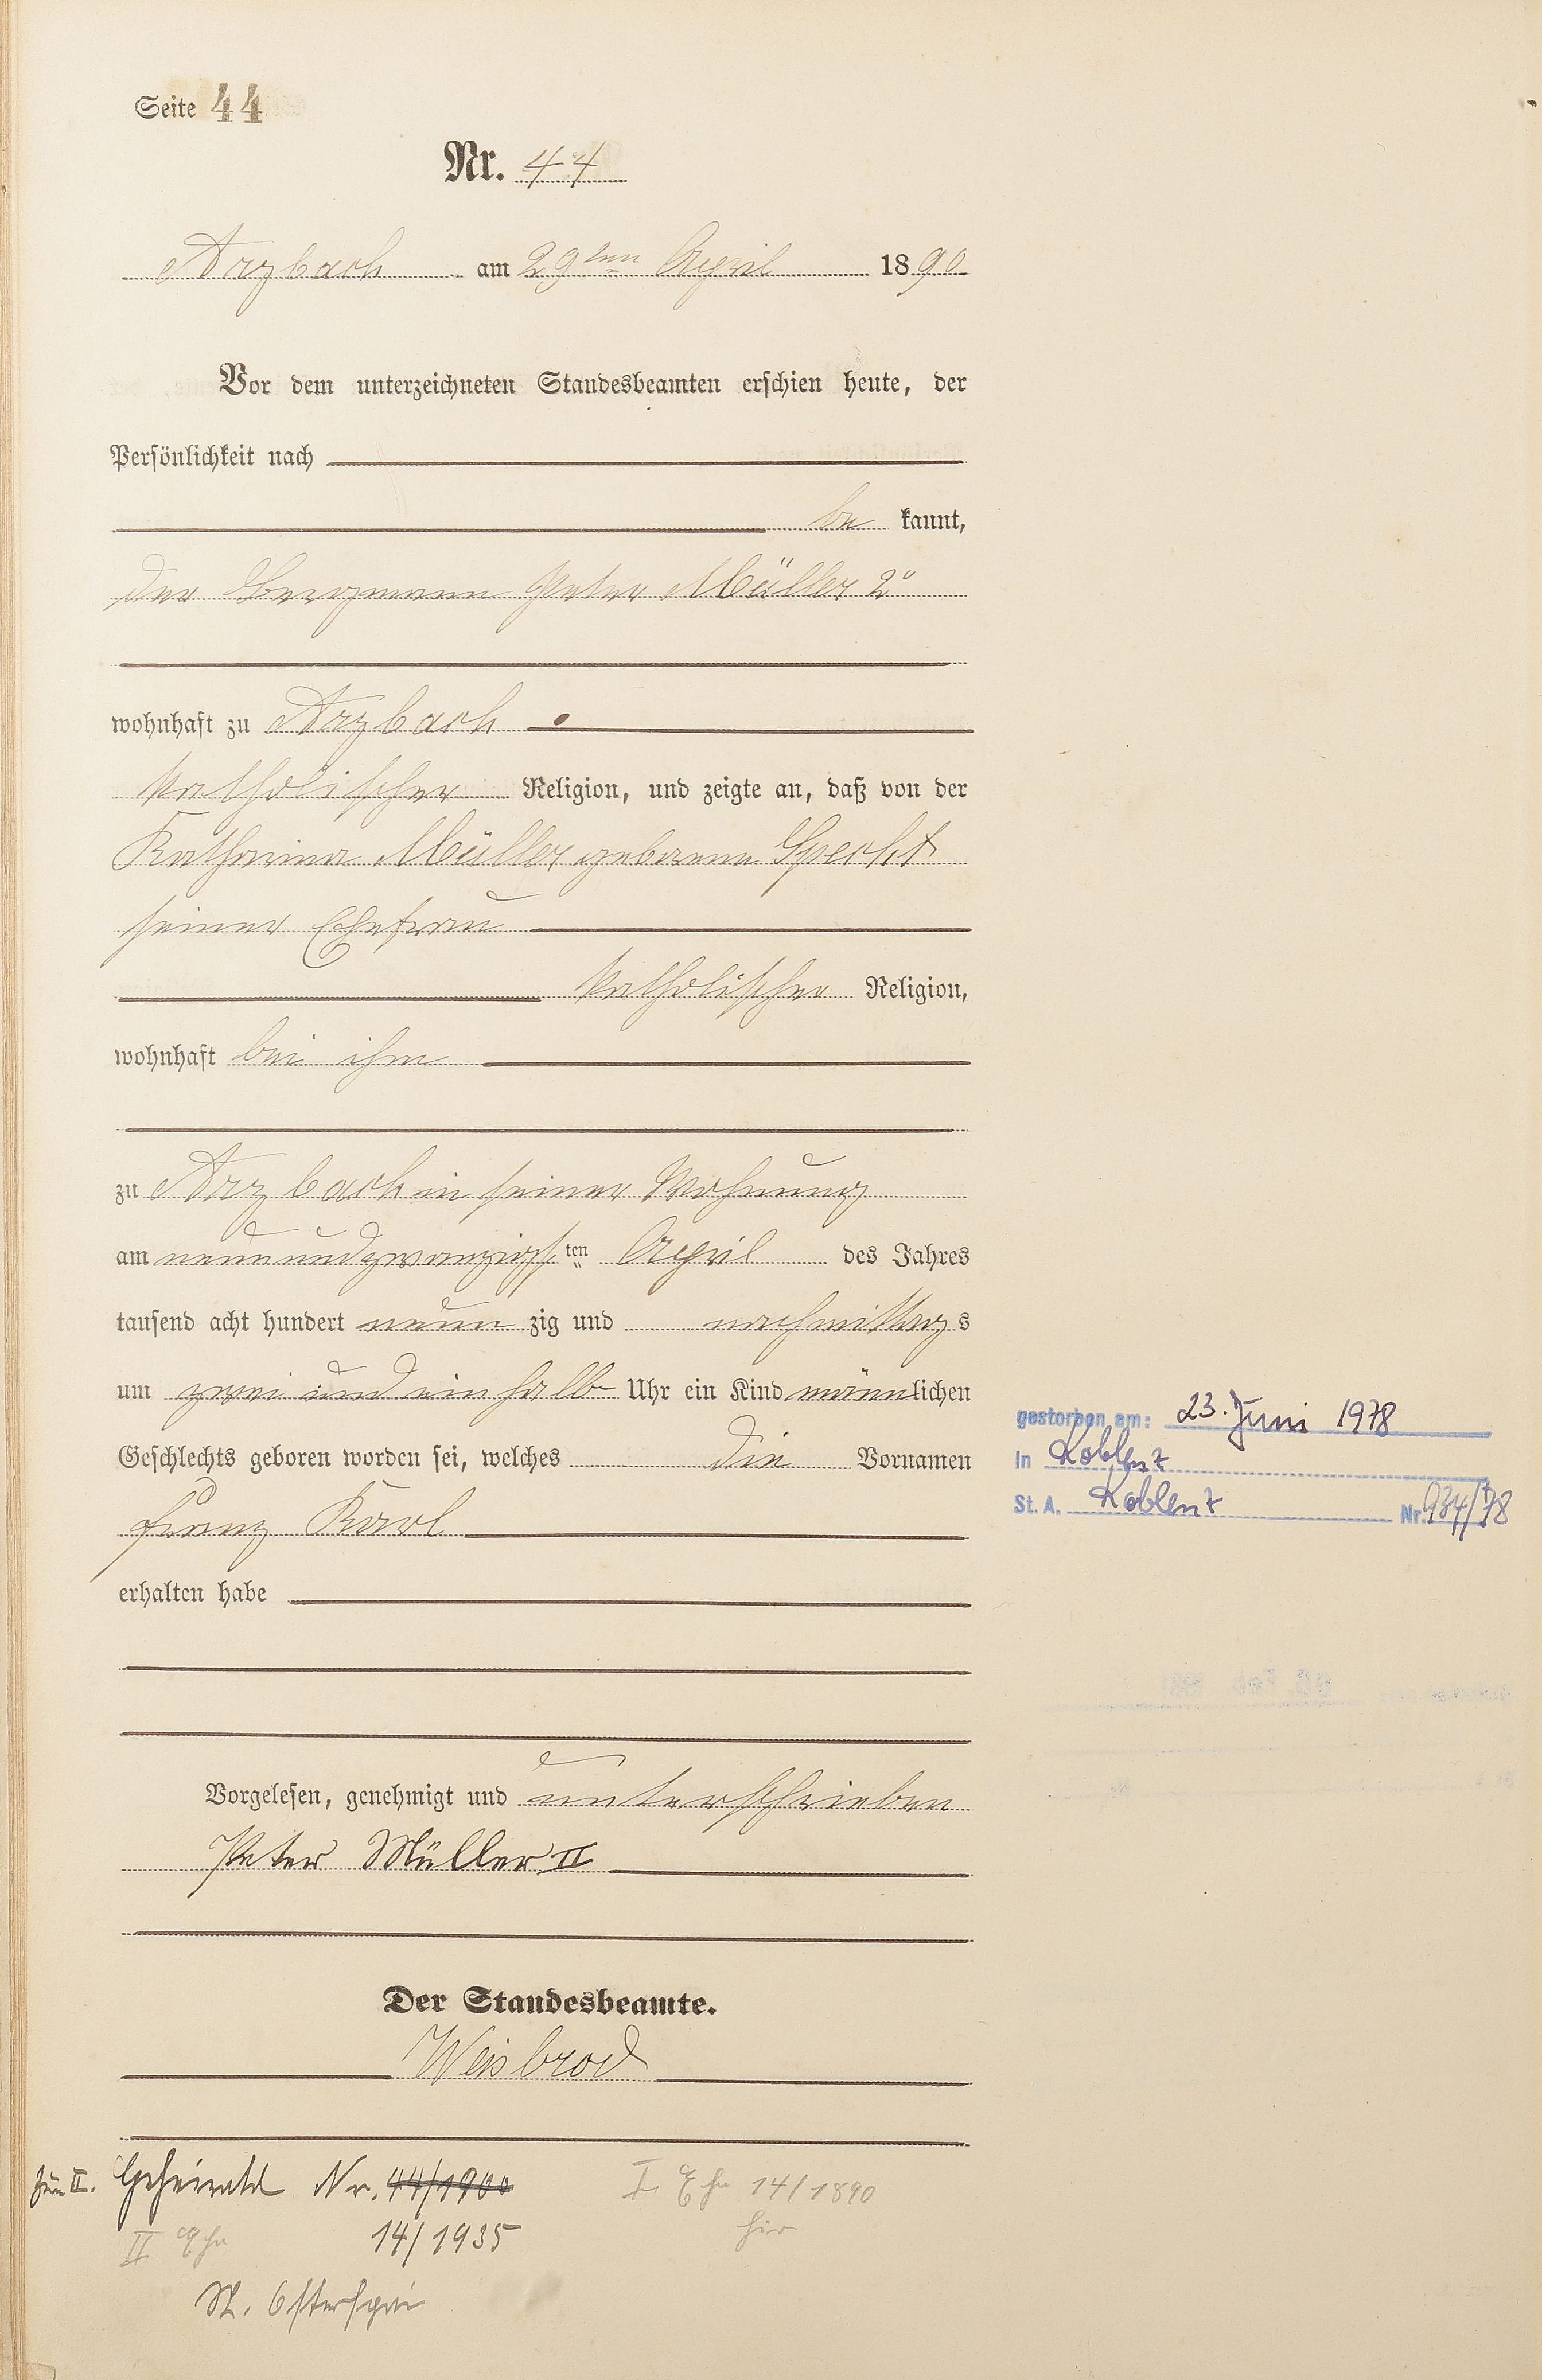 Seite 44
Nr. 44
Arzbach am 29ten April 1890
Vor dem unterzeichneten Standesbeamten erschien heute, der
Persönlichkeit nach
be kannt,
der Bergmann Peter Müller 2r
wohnhaft zu Arzbach
katholischer Religion, und zeigte an, daß von der
Katharina Müller geborene Specht
seiner Ehefrau
katholischer Religion,
wohnhaft bei ihm
zu Arzbach in seiner Wohnung
am neunundzwanzigsten April des Jahres
tausend acht hundert neun zig und nachmittags
um zwei und ein halb Uhr ein Kind männlichen
Geschlechts geboren worden sei, welches die Vornamen
Franz Karl
erhalten habe
Vorgelesen, genehmigt und unterschrieben
Peter Müller II
Der Standesbeamte.
Weisbrod
gestorben am: 23. Juni 1978
in Koblenz
St. A. Koblenz Nr. 934/78
zum II. Geheiratet Nr. 44/1900
14/1935
II Ehe
St. Osterspai
I. Ehe 14/1890
hier